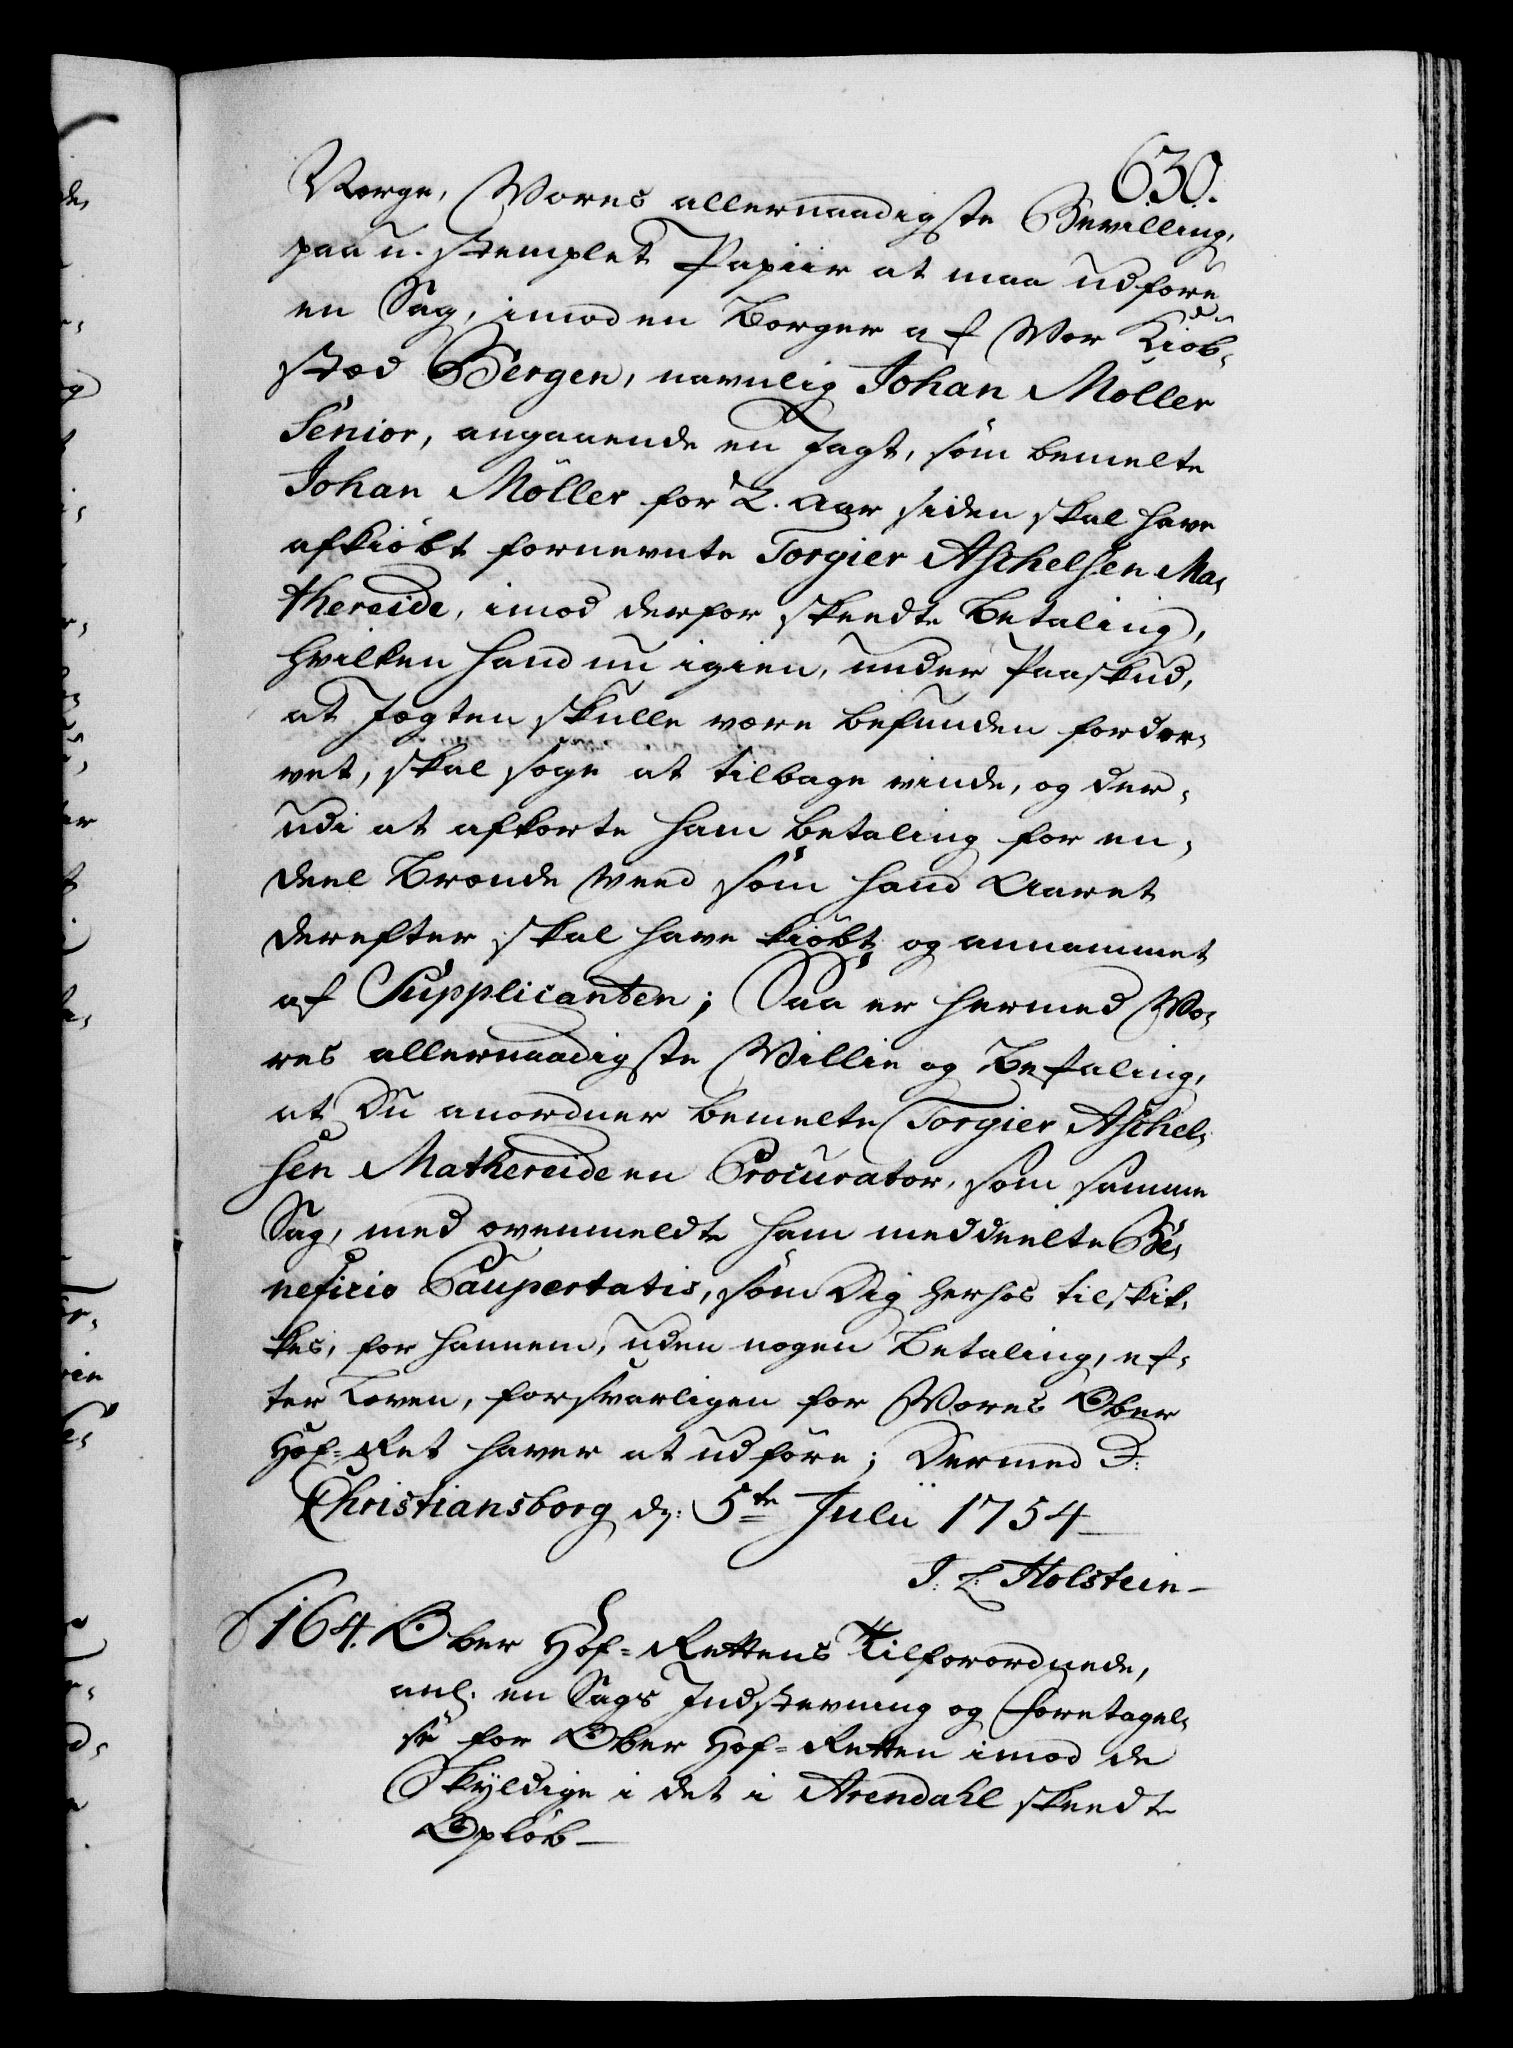 630.
Norge, Vores allernaadigste Bevilling,
paa u-stemplet Papiir at maa udføre
en Sag, imod en Borger af Vor Kiøb-
stæd Bergen, navnlig Johan Møller
Senior, angaaende en Jagt, som bemelte
Johan Møller for 2. Aar siden skal have
afkiøbt fornevnte Torgier Aschelsen Ma-
thereide, imod derfor skeedte Betaling,
hvilken hand nu igien, under Paaskud,
at Jagten skulle være befunden forder-
vet, skal søge at tilbage vinde, og der-
udi at afkorte ham betaling for en-
deel Brænde Veed som hand Aaret
derefter skal have kiøbt og annammet
af Supplicanten; Saa er hermed Vo-
res allernaadigste Villie og Befaling,
at Du anordner bemelte Torgier Aschel-
sen Mathereide en Procurator, som samme
Sag, med ovenmeldte ham meddeelte Be-
neficio Paupertatis, som Dig herhos tilskik-
kes, for hannem, uden nogen Betaling, ef-
ter Loven, forsvarligen for Vores Ober
Hof-Ret haver at udføre; Dermed ꝛ:
Christiansborg d: 5te Julii 1754
J. L. Holstein
164. Ober Hof-Rettens Tilforordnede,
anl. en Sags Indstevning og Foretagel-
se for Ober Hof-Retten imod de
Skyldige i det i Arendahl skeedte
Opløb